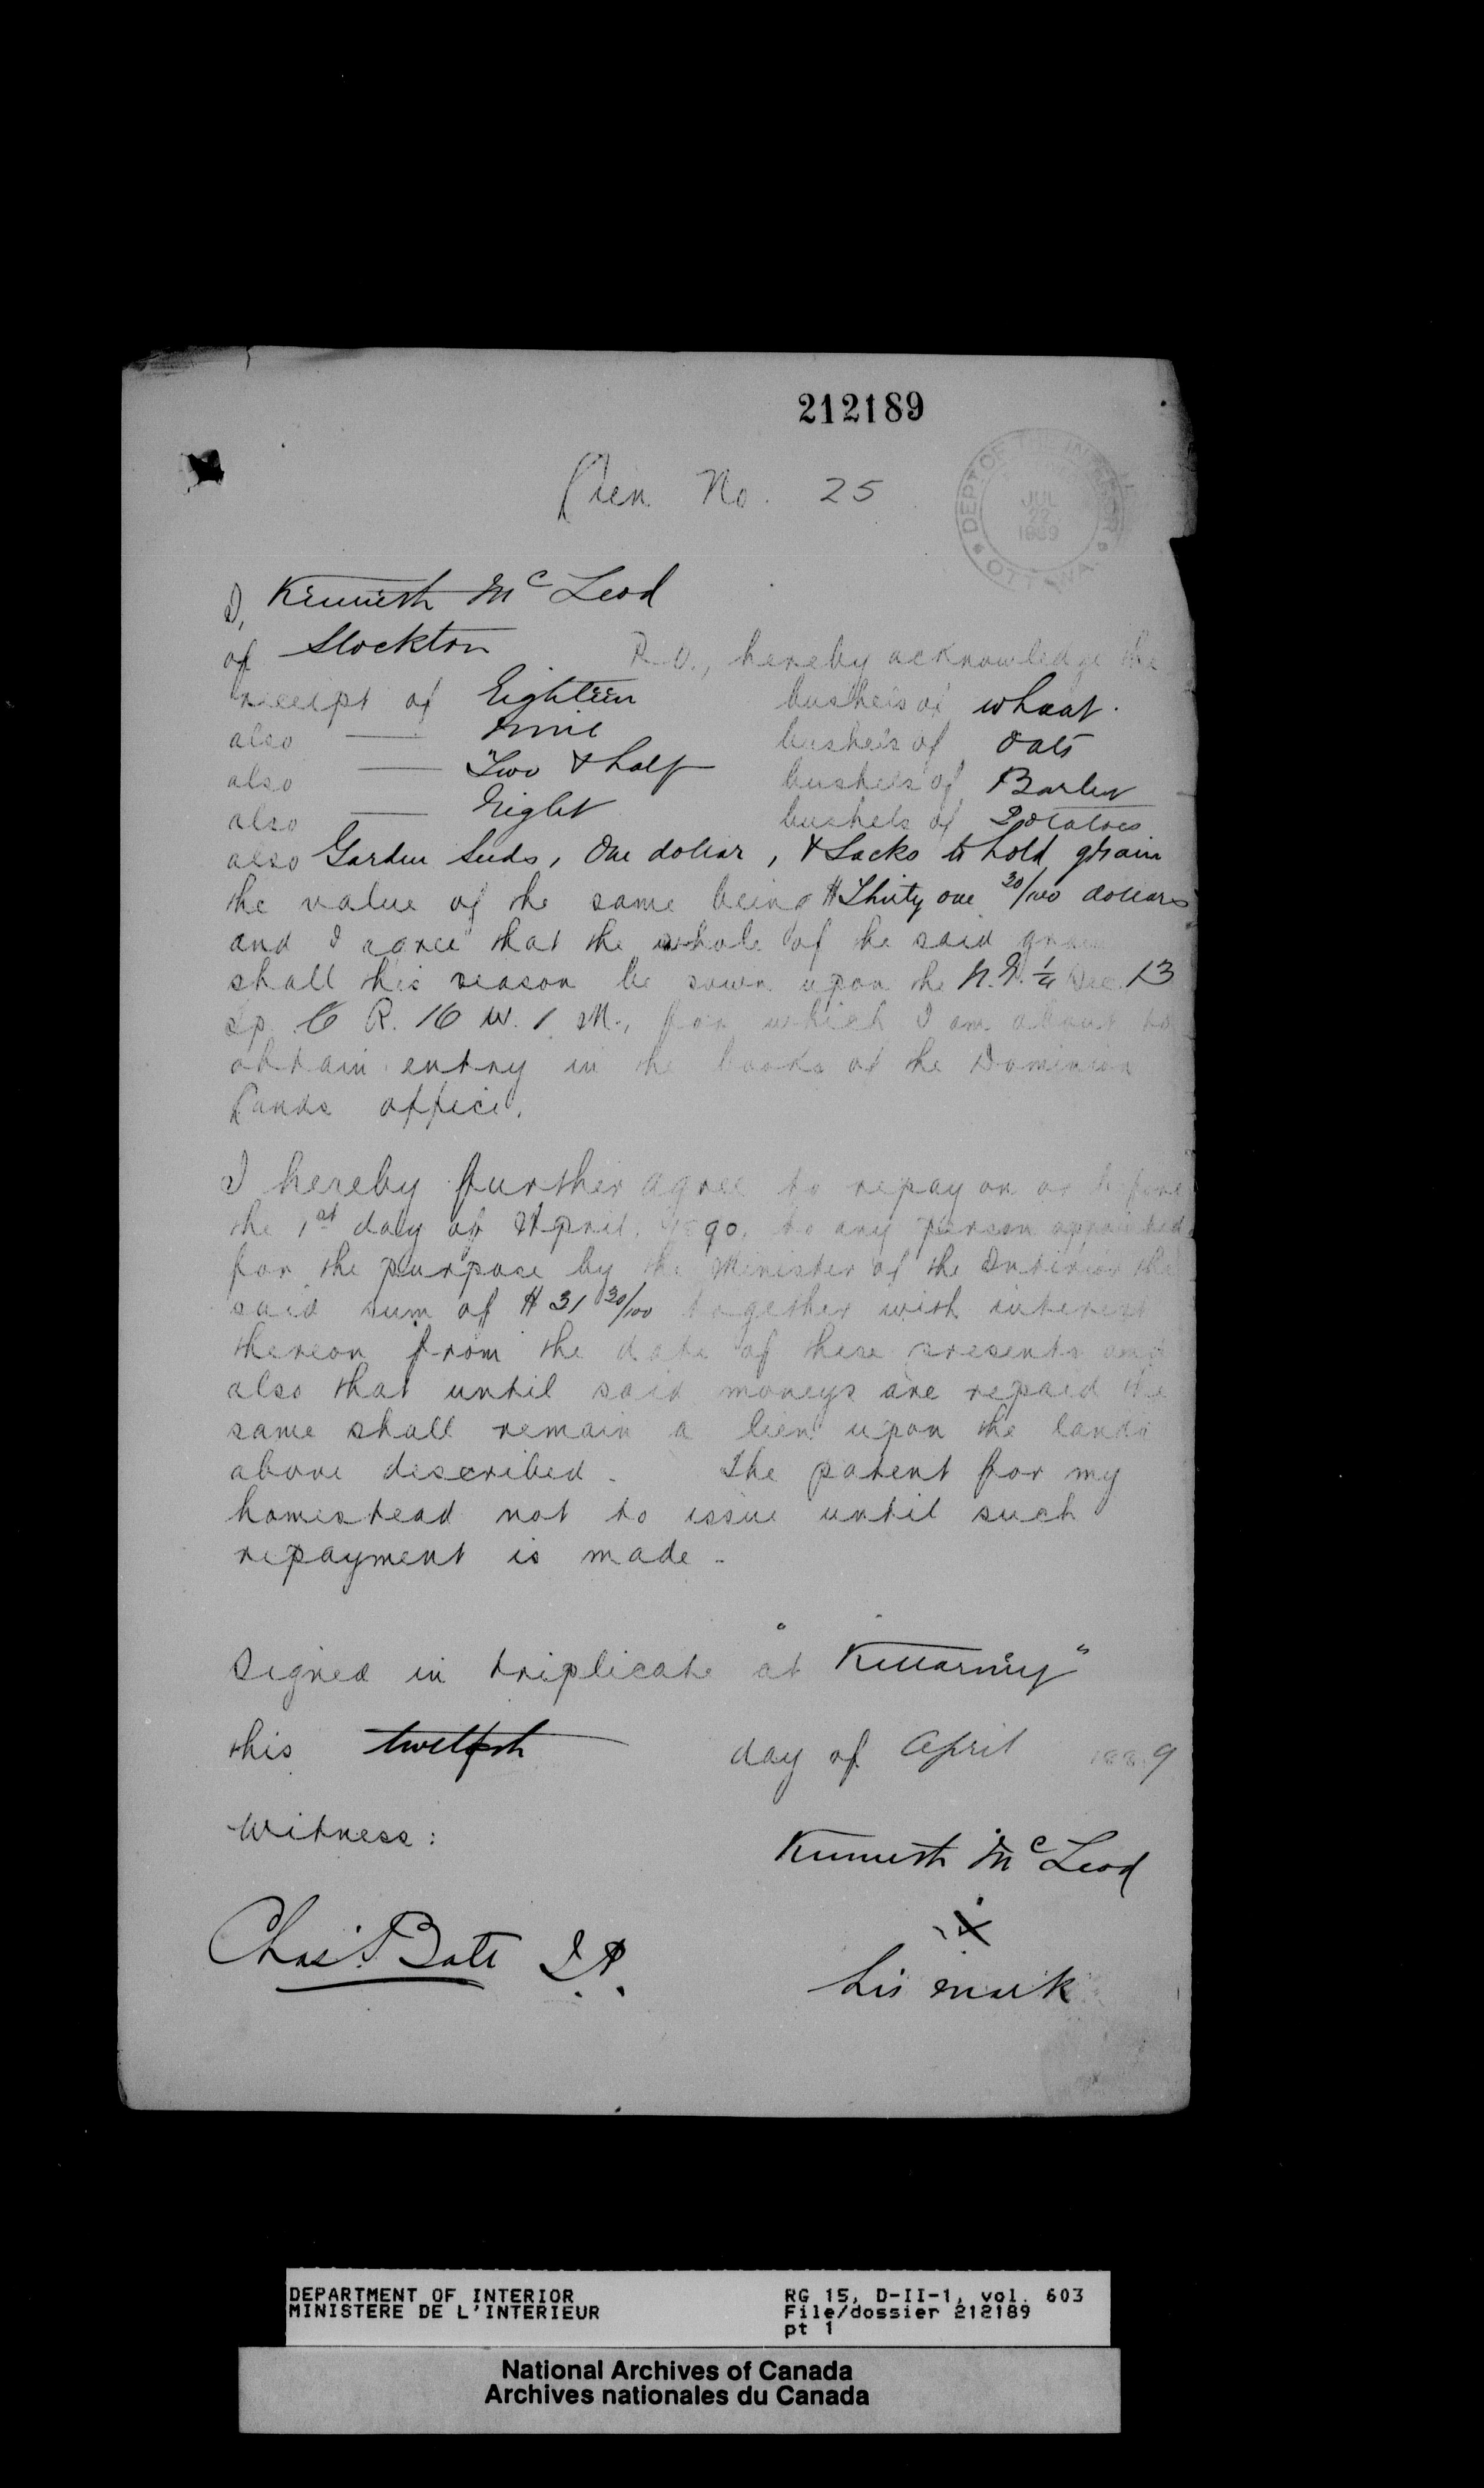 212189
Lien No. 25
DEPT OF THE INTERIOR
JUL
22
1889
OTTAWA
I, Kenneth Mc Leod
of Stockton P.O., hereby acknowledge the
receipt of Eighteen bushels of wheat.
also — nine bushels of oats
also — Two & half bushels of Barley
also — Eight bushels of Potatoes
also Garden Seeds, One dollar, & Sacks to hold grain
the value of the same being $ Thirty one 30/100 dollars
and I agree that the whole of the said grain
shall this season be sown upon the N.E. 1/4 Sec. 13
Tp. 6 R. 16 W. 1 M., for which I am about to
obtain entry in the books of the Dominion
Lands office.
I hereby further agree to repay on or before
the 1st day of April, 1890, to any person appointed
for the purpose by the Minister of the Interior the
said sum of $ 31 30/100 together with interest
thereon from the date of these presents and
also that until said moneys are repaid the
same shall remain a lien upon the lands
above described. The patent for my
homestead not to issue until such
repayment is made -
Signed in triplicate at "Killarney"
this twelfth day of April 1889
Witness:
Kenneth Mc Leod
x
his mark
Chas. Bate J.P.
DEPARTMENT OF INTERIOR
MINISTERE DE L'INTERIEUR
RG 15, D-II-1, vol. 603
File/dossier 212189
pt 1
National Archives of Canada
Archives nationales du Canada